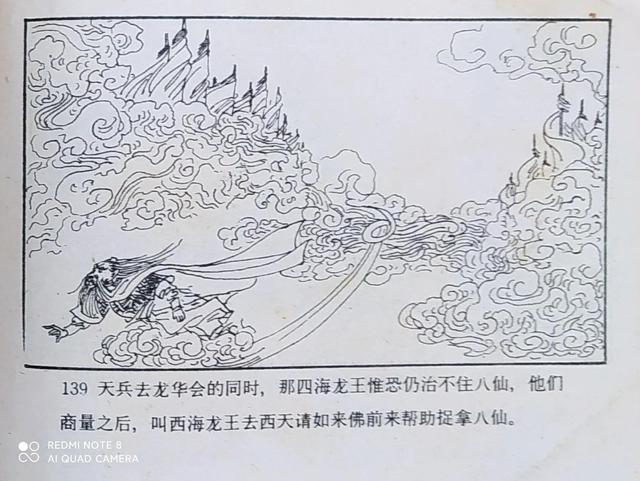 139 天兵去龙华会的同时，那四海龙王惟恐仍治不住八仙，他们
商量之后，叫西海龙王去西天请如来佛前来帮助捉拿八仙。
REDMI NOTE 8
AI QUAD CAMERA